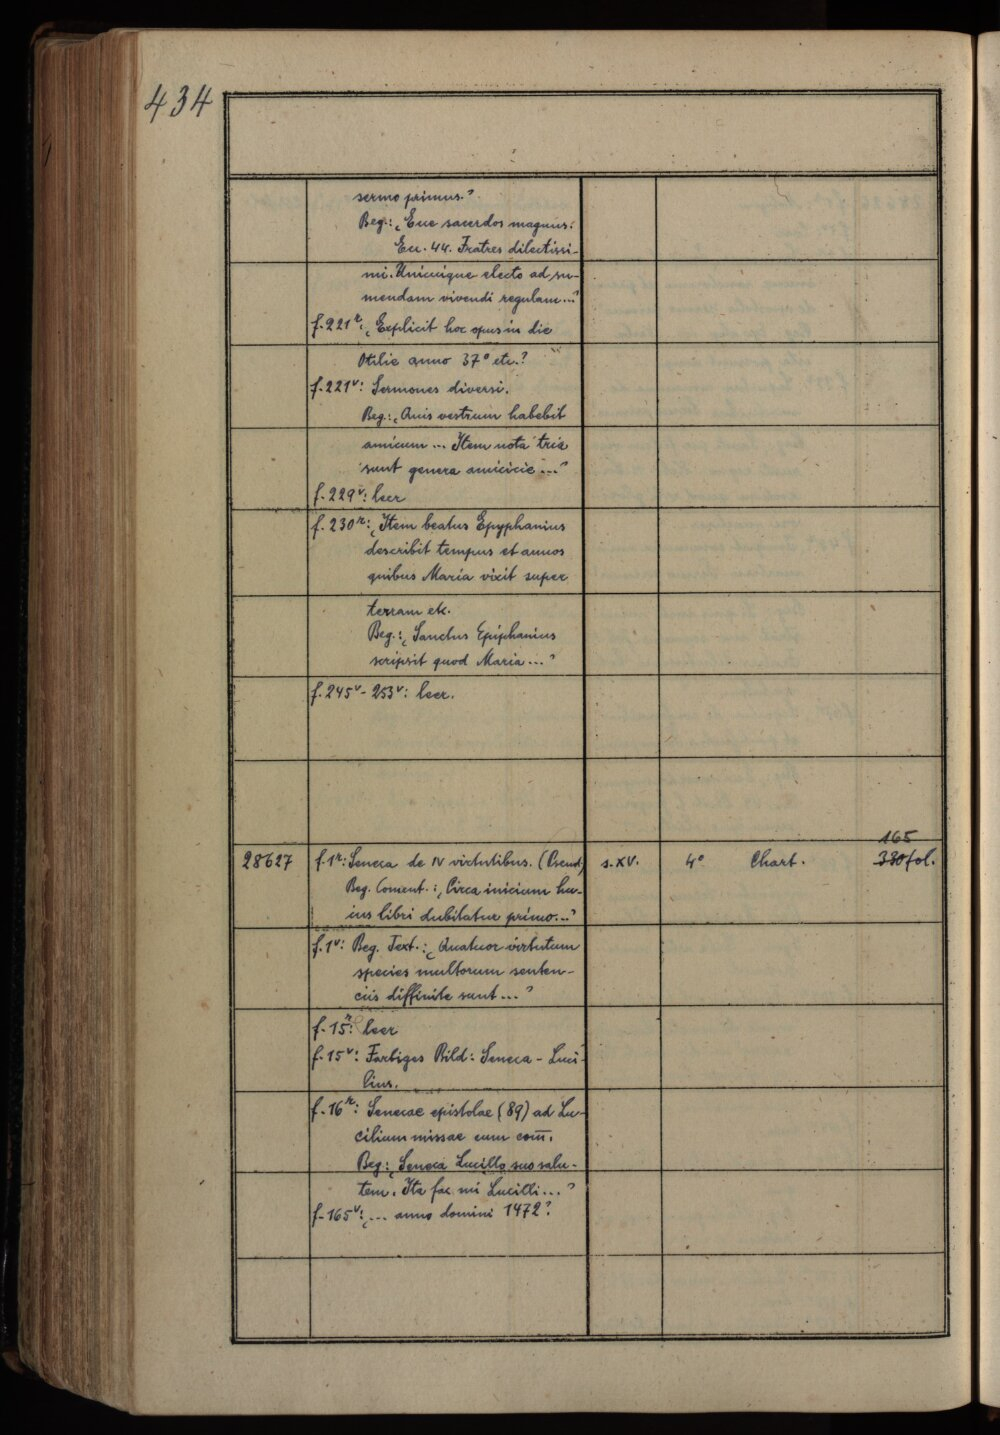 434
sermo primus."
Beg.: „Ecce sacerdos magnus:
Ecc. 44. Fratres dilectissi-
mi. Unicuique electo ad su-
mendam vivendi regulam..."
f. 221r: „Explicit hoc opus in die
Otilie anno 37º etc."
f. 221v: Sermones diversi.
Beg.: „Quis vestrum habebit
amicum ... Item nota tria
sunt genera amicicie ..."
f. 229v: leer
f. 230r: „Item beatus Epyphanius
describit tempus et annos
quibus Maria vixit super
terram etc.
Beg.: „Sanctus Epiphanius
scripsit quod Maria ..."
f. 245v - 253v: leer.
165
28627 f. 1r: Seneca de IV virtutibus. (Pseud) s. XV. 4º Chart. 330 fol.
Beg. Coment.: „Circa inicium hu-
ius libri dubitatur primo..."
f. 1v: Beg. Text.: „Quatuor virtutum
species multorum senten-
ciis diffinite sunt ..."
f. 15r: leer
f. 15v: Farbiges Bild: Seneca - Luci-
lius.
f. 16r: Senecae epistolae (89) ad Lu-
cilium missae cum com̅.
Beg.: „Seneca Lucillo suo salu-
tem. Ita fac mi Lucilli ..."
f. 165v: „... anno domini 1472".